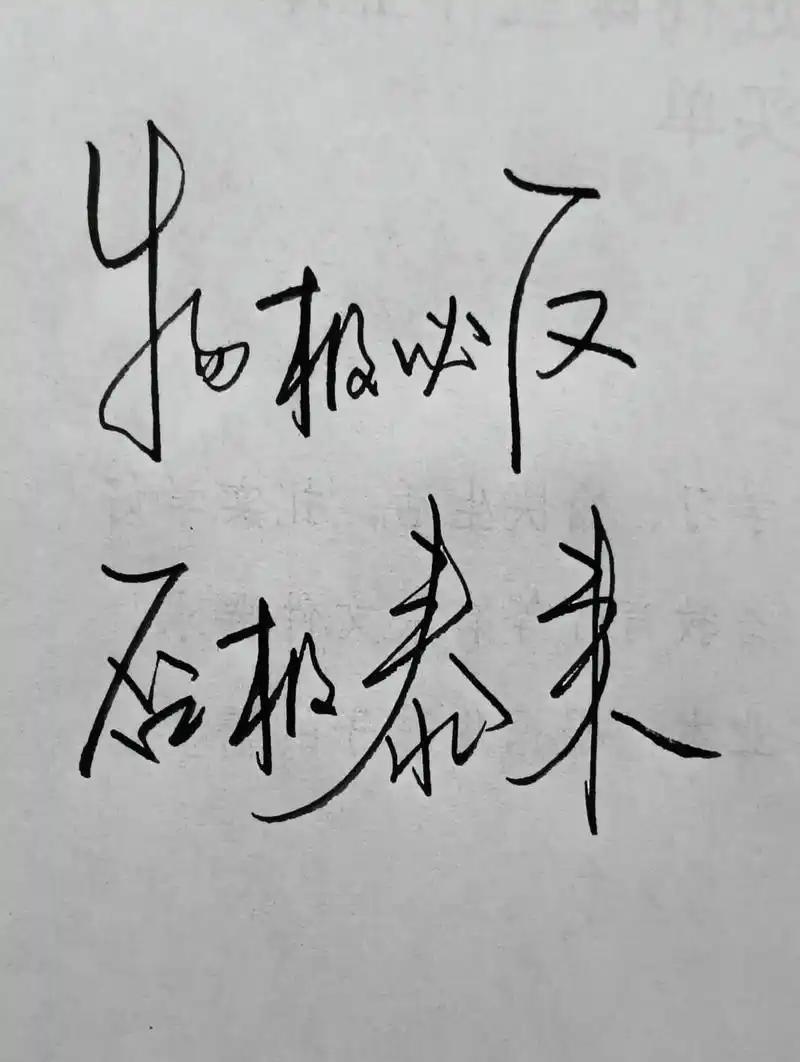 物极必反
否极泰来